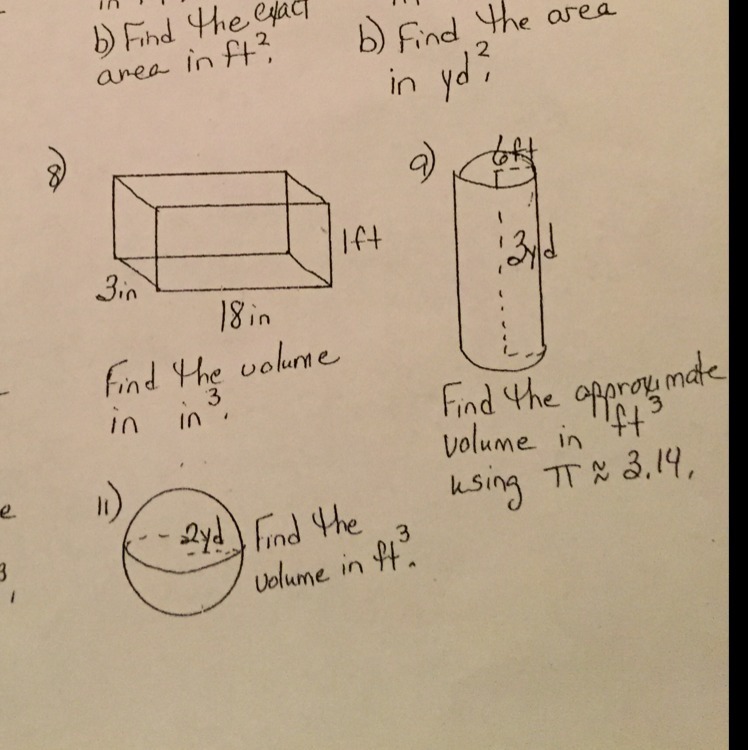 b) Find the exact
area in ft².
b) Find the area
in yd².
8)
1ft
3in
18 in
Find the volume
in in³.
9)
6ft
3yd
Find the approximate
volume in ft³
using π ≈ 3.14.
11)
2yd
Find the
volume in ft³.